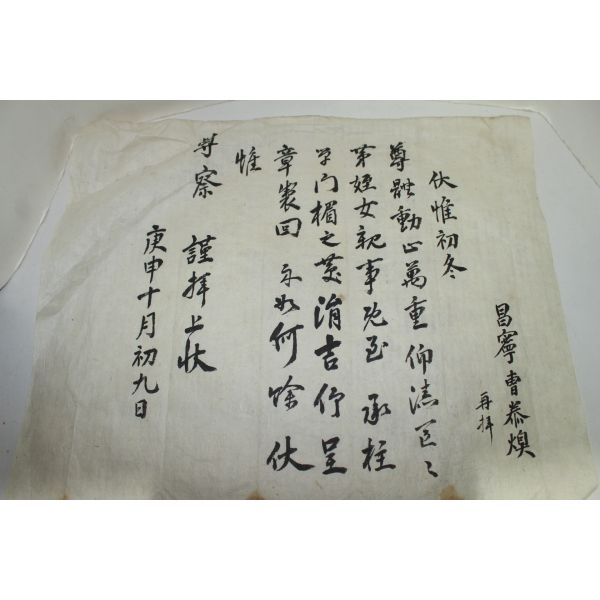 昌寧曺恭煥
再拜
伏惟初冬
尊體動止萬重仰溸區〻
第姪女親事旣至承柱
單門楣之慶涓吉仰呈
章製回示如何餘伏
惟
尊察 謹拜上狀
庚申十月初九日